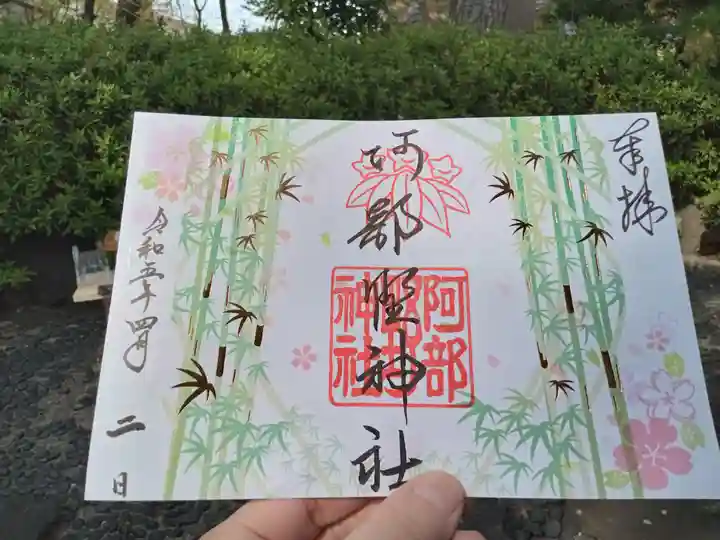 奉拝
阿部野神社
阿部
神社
令和五年四月二日